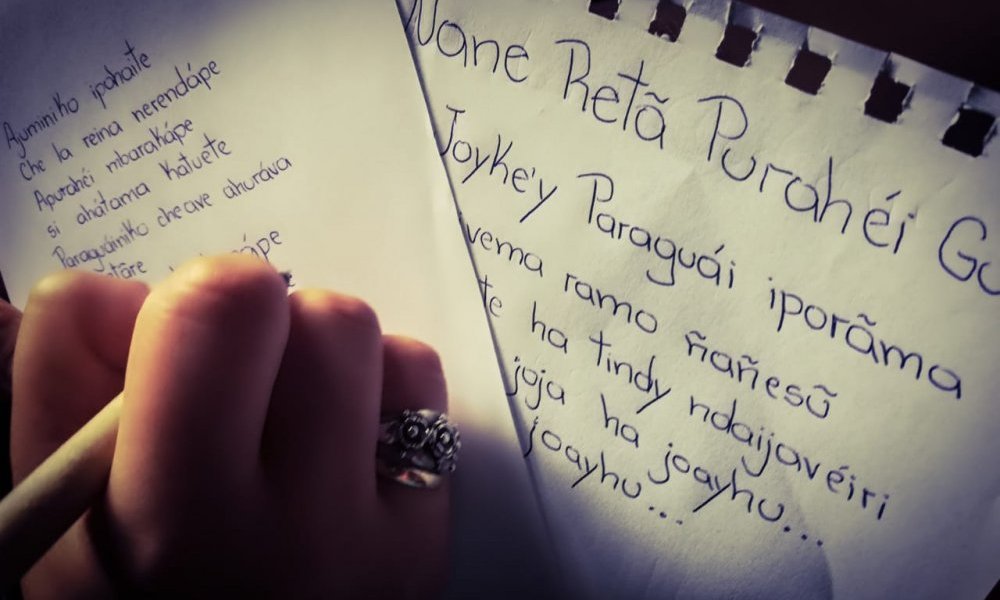 Ajuminiko ipahaite
che la reina nerendápe
Apurahéi mbarakápe
si ahátama katuete
Paraguáiniko cheave ahuráva
Ñane Retã Purahéi Gu
Joyke'y Paraguái iporãma
vema ramo ñañesũ
te ha tindy ndaijavéiri
joja ha joayhu...
joayhu...